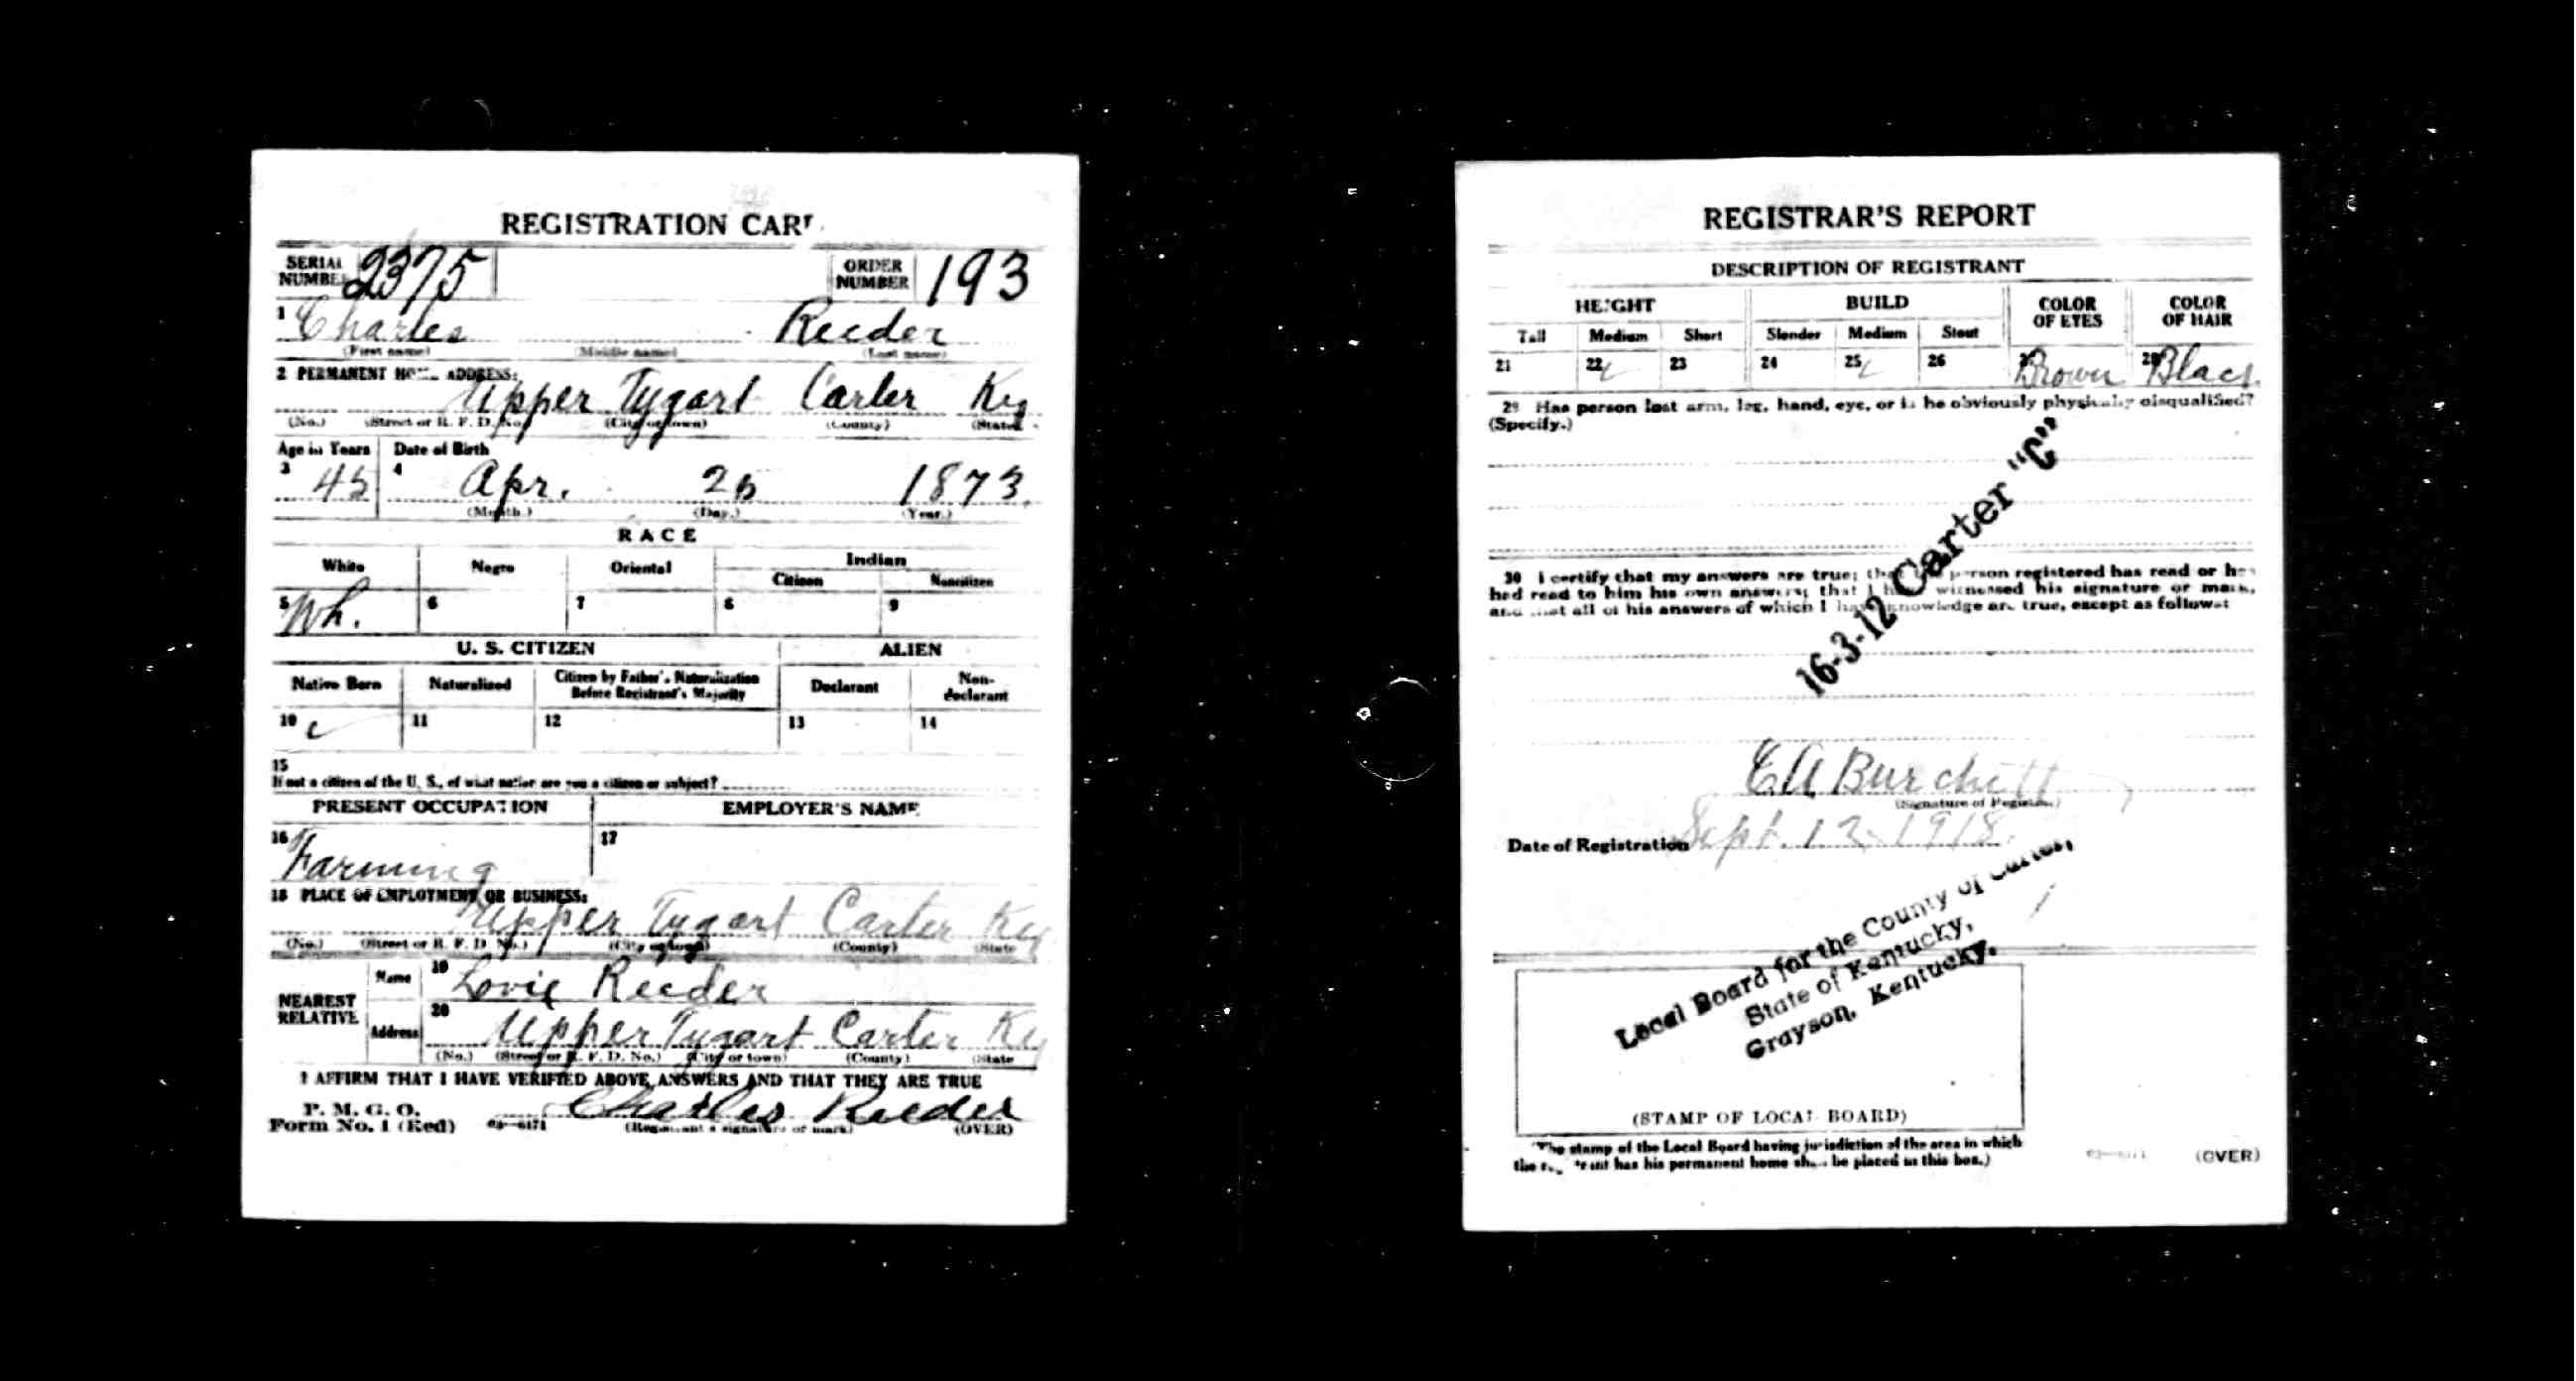 REGISTRATION CARD
SERIAL NUMBER 2375 ORDER NUMBER 193
1 Charles Reeder
(First name) (Middle name) (Last name)
2 PERMANENT HOME ADDRESS:
Upper Tygart Carter Ky
(No.) (Street or R. F. D. No.) (City or town) (County) (State)
Age in Years Date of Birth
3 45 4 Apr. 26 1873
(Month.) (Day.) (Year.)
RACE
White Negro Oriental Indian
Citizen Noncitizen
5 Wh. 6 7 8 9
U. S. CITIZEN ALIEN
Native Born Naturalized Citizen by Father's Naturalization Before Registrant's Majority Declarant Non-declarant
10 11 12 13 14
15
If not a citizen of the U. S., of what nation are you a citizen or subject?
PRESENT OCCUPATION EMPLOYER'S NAME
16 Farming 17
18 PLACE OF EMPLOYMENT OR BUSINESS:
Upper Tygart Carter Ky
(No.) (Street or R. F. D. No.) (City or town) (County) (State
NEAREST RELATIVE Name 19 Lovie Reeder
Address 20 Upper Tygart Carter Ky
(No.) (Street or R. F. D. No.) (City or town) (County) (State
I AFFIRM THAT I HAVE VERIFIED ABOVE ANSWERS AND THAT THEY ARE TRUE
P. M. G. O.
Form No. 1 (Red) Charles Reeder
(Registrant's signature or mark) (OVER)
REGISTRAR'S REPORT
DESCRIPTION OF REGISTRANT
HEIGHT BUILD COLOR OF EYES COLOR OF HAIR
Tall Medium Short Slender Medium Stout
21 22 23 24 25 26 27 Brown 28 Black
29 Has person lost arm, leg, hand, eye, or is he obviously physically disqualified?
(Specify.)
16-3-12 Carter "C"
30 I certify that my answers are true; that the person registered has read or has
had read to him his own answers; that I have witnessed his signature or mark,
and that all of his answers of which I have knowledge are true, except as follows:
E A Burchett
(Signature of Registrar)
Date of Registration Sept. 12 1918
Local Board for the County of Carter,
State of Kentucky,
Grayson, Kentucky.
(STAMP OF LOCAL BOARD)
(The stamp of the Local Board having jurisdiction of the area in which
the registrant has his permanent home shall be placed in this box.)
(OVER)